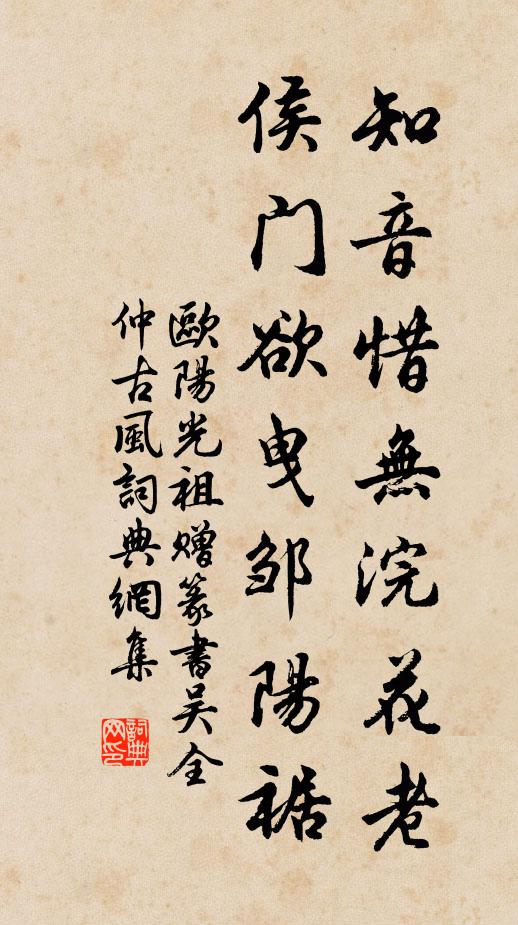 知音惜無浣花老
侯門欲曳邹陽裾
歐陽光祖赠篆書吴全
仲古風詞典網集
詞典
网印